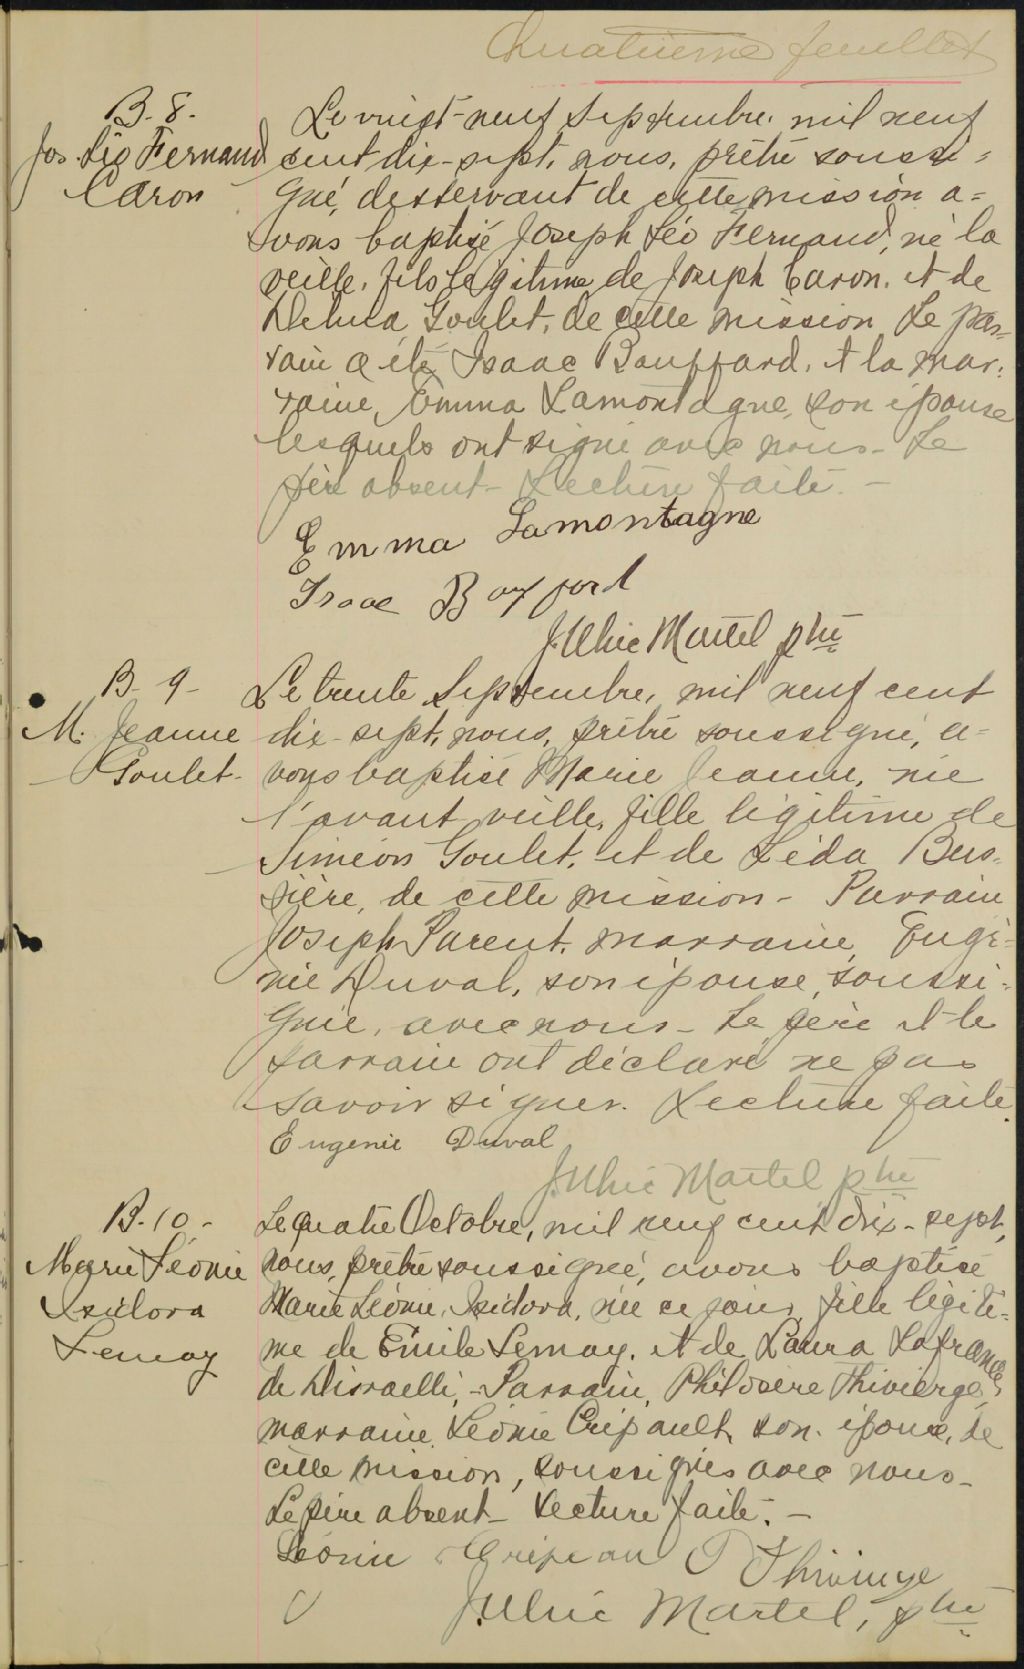 Quatrième feuillet
B. 8.
Jos. Léo Fernand
Caron
Le vingt-neuf Septembre, mil neuf
cent dix-sept, nous, prêtre soussi=
gné, desservant de cette mission a=
vons baptisé Joseph Léo Fernand, né la
veille, fils légitime de Joseph Caron, et de
Delvica Goulet, de cette mission Le par=
rain a été Isaac Bauffard, et la mar=
raine, Emma Lamontagne, son épouse
lesquels ont signé avec nous - Le
père absent - Lecture faite. -
Emma Lamontagne
Isaac Boufford
J. Ulric Martel ptre
B- 9-
M. Jeanne
Goulet-
Le trente Septembre, mil neuf cent
dix-sept, nous, prêtre soussigné, a=
vons baptisé Marie Jeanne, née
l'avant veille, fille légitime de
Siméon Goulet, et de Léda Bus=
sière, de cette mission - Parrain
Joseph Parent, marraine, Eugé=
nie Duval, son épouse, soussi=
gnée, avec nous - Le père et le
parrain ont déclaré ne pas
savoir signer. Lecture faite.
Eugenie Duval
J. Ulric Martel ptre
B-10-
Marie Léonie
Isidora
Lemay
Le quatre Octobre, mil neuf cent dix-sept,
nous, prêtre soussigné, avons baptisé
Marie Léonie, Isidora, née ce jour, fille légiti=
me de Émile Lemay, et de Laura Lafrance,
de Disraelli, - Parrain, Philosère Thivierge,
marraine Léonie Cripault, son épouse, de
cette mission, soussignés avec nous -
Le père absent - Lecture faite. -
Léonie Cripeau P Thivierge
J. Ulric Martel, ptre